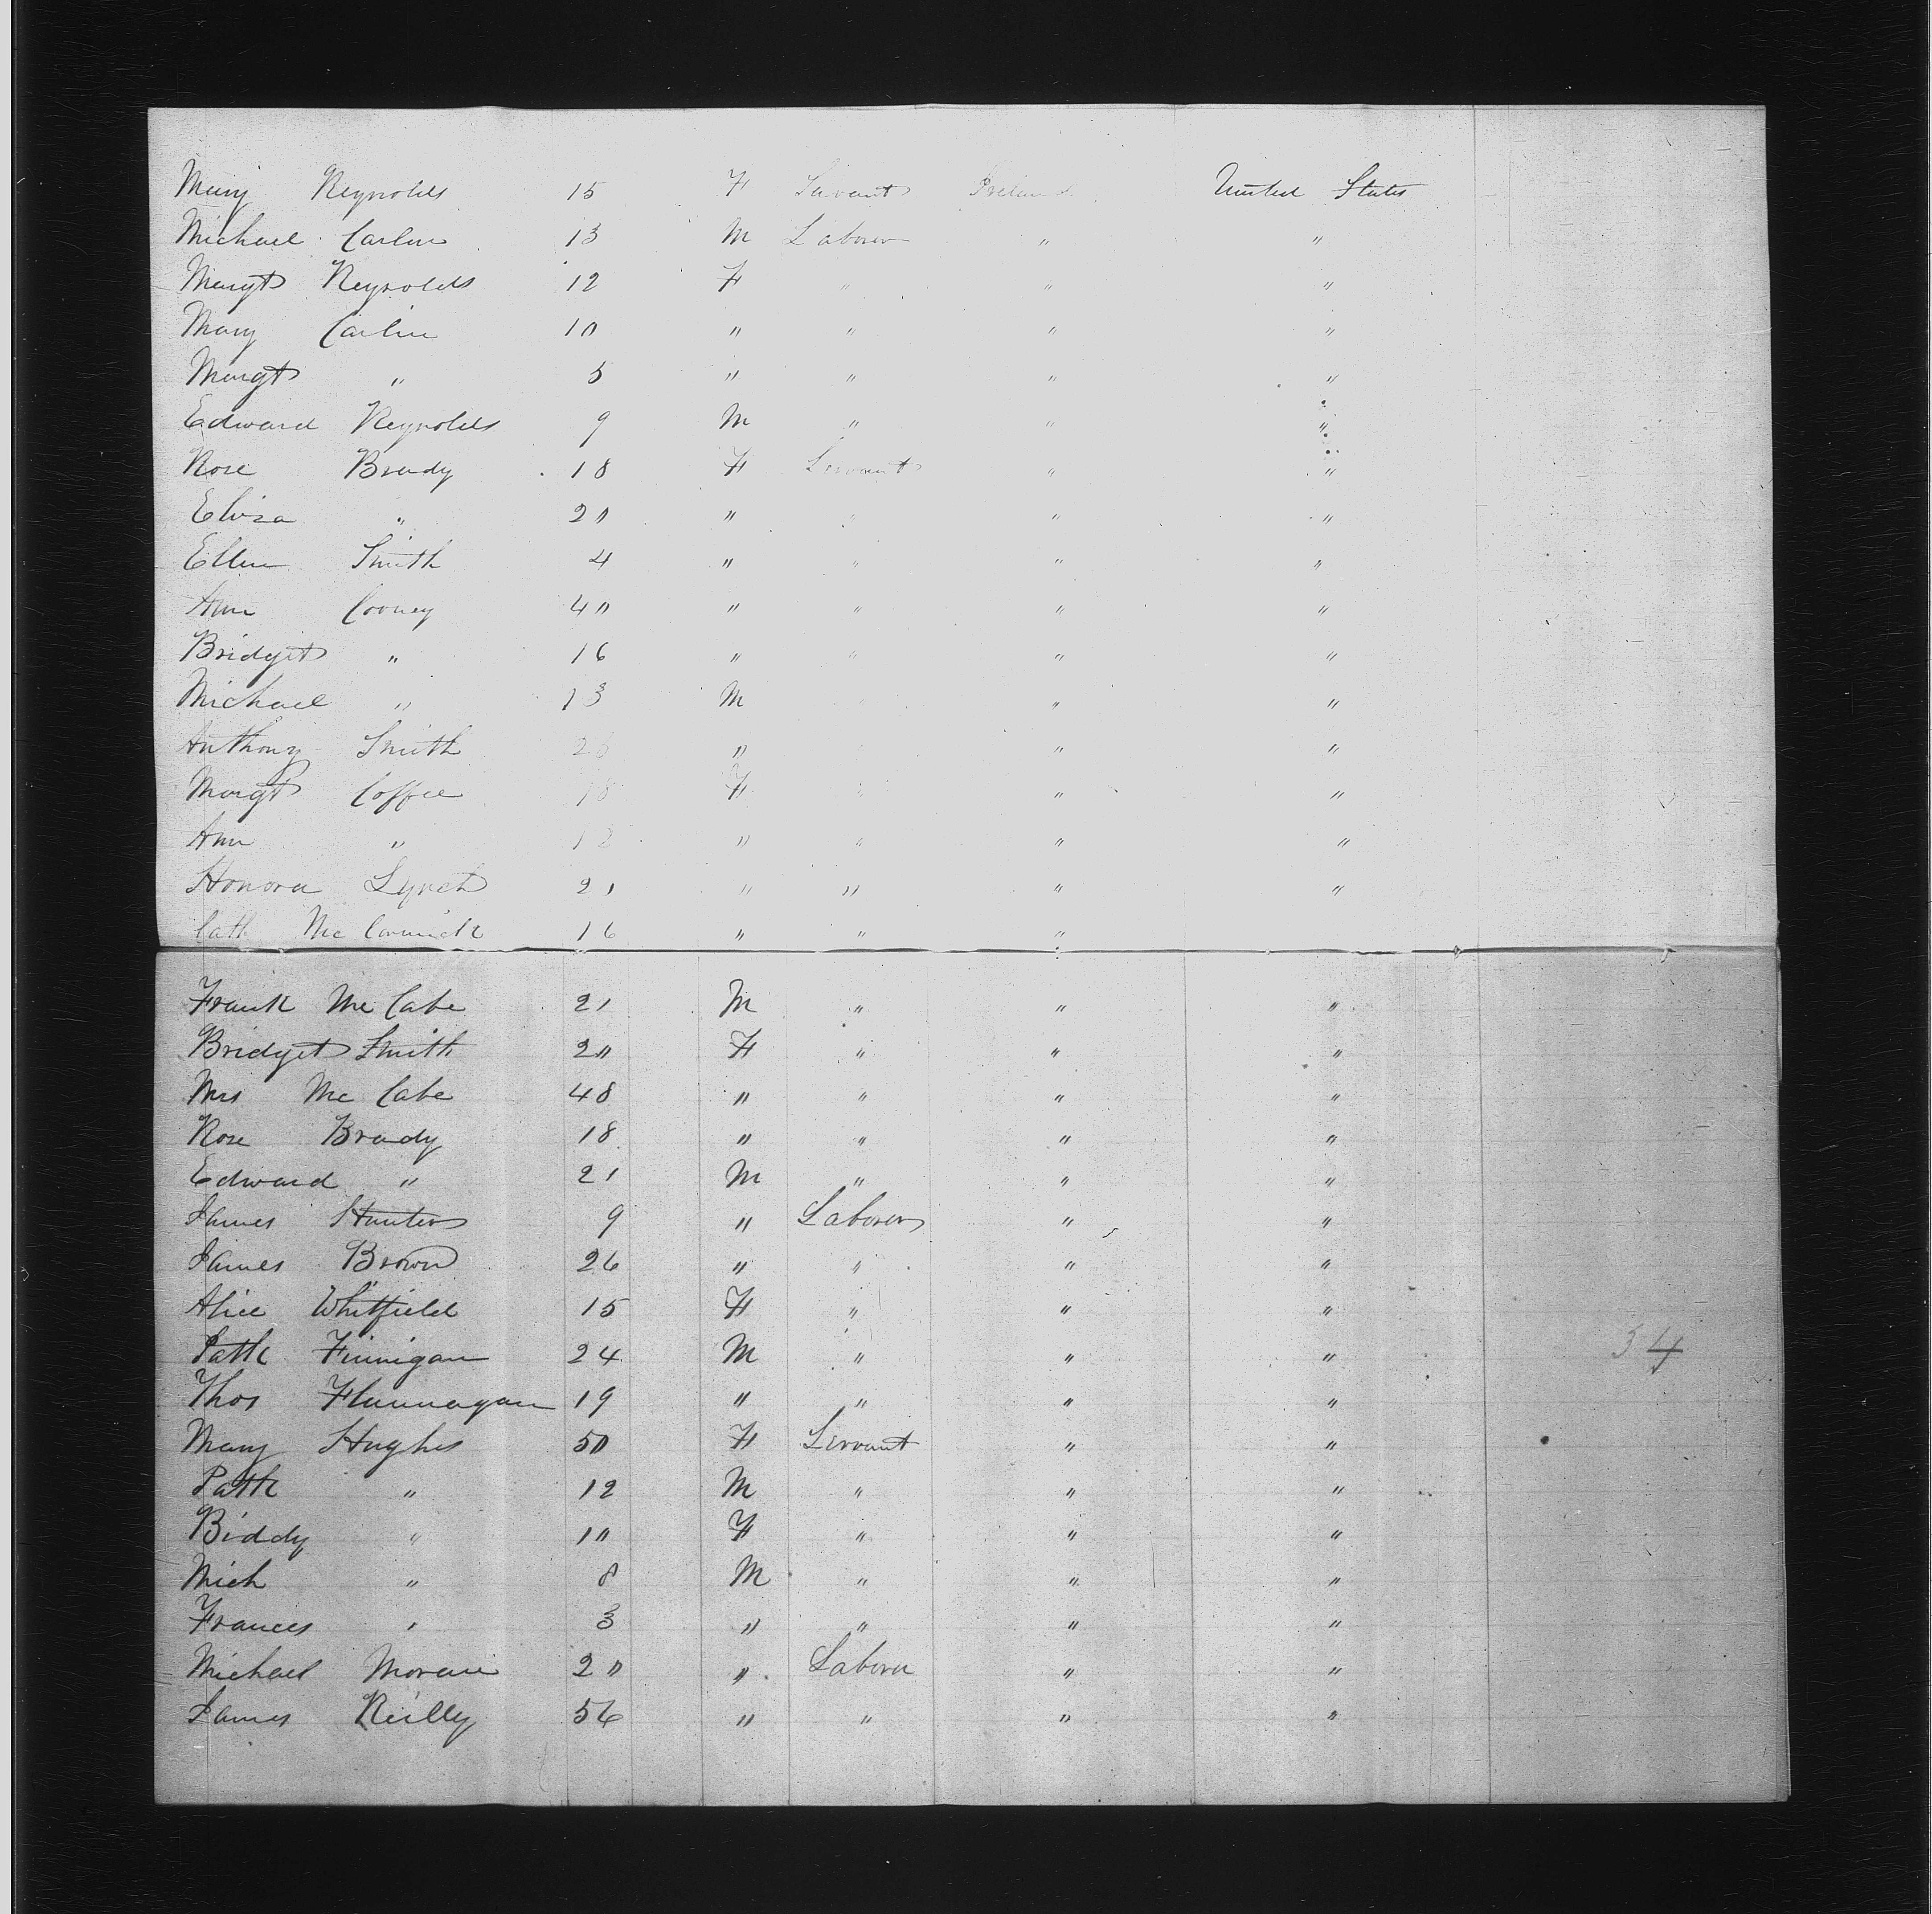 Mary Reynolds 15 F Servant Ireland United States
Michael Carlin 13 M Laborer " "
Margt Reynolds 12 F " " "
Mary Carlin 10 " " " "
Margt " 5 " " " "
Edward Reynolds 9 M " " "
Rose Brady 18 F Servant " "
Eliza " 20 " " " "
Ellen Smith 4 " " " "
Ann Cooney 40 " " " "
Bridget " 16 " " " "
Michael " 13 M " " "
Anthony Smith " " " "
Margt Coffee 18 F " " "
Ann " " " " "
Honora Lynch 21 " " " "
Cath McCormick 16 " " "
Frank McCabe 21 M " " "
Bridget Smith 20 F " " "
Mrs McCabe 48 " " " "
Rose Brady 18 " " " "
Edward " 21 M " " "
James Hunter 9 " Laborer " "
James Brown 26 " " " "
Alice Whitfield 15 F " " "
Patk Finnigan 24 M " " "
34
Thos Flannagan 19 " " " "
Mary Hughes 50 F Servant " "
Patk " 12 M " " "
Biddy " 10 F " " "
Mich " 8 M " " "
Frances " 3 " " " "
Michael Moran 20 " Laborer " "
James Reilly 56 " " " "